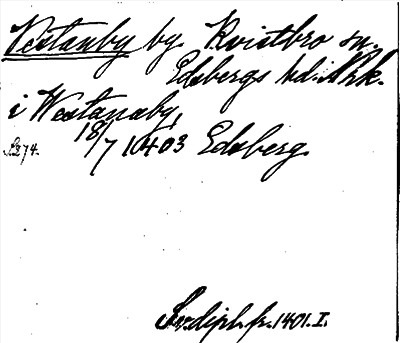 Västanby by Kvistbro sn.
Edsbergs hd. Nrk.
i Westanaby,
18/7 1403 Edsberg
S. 274.
Sv. dipl. fr. 1401. I.